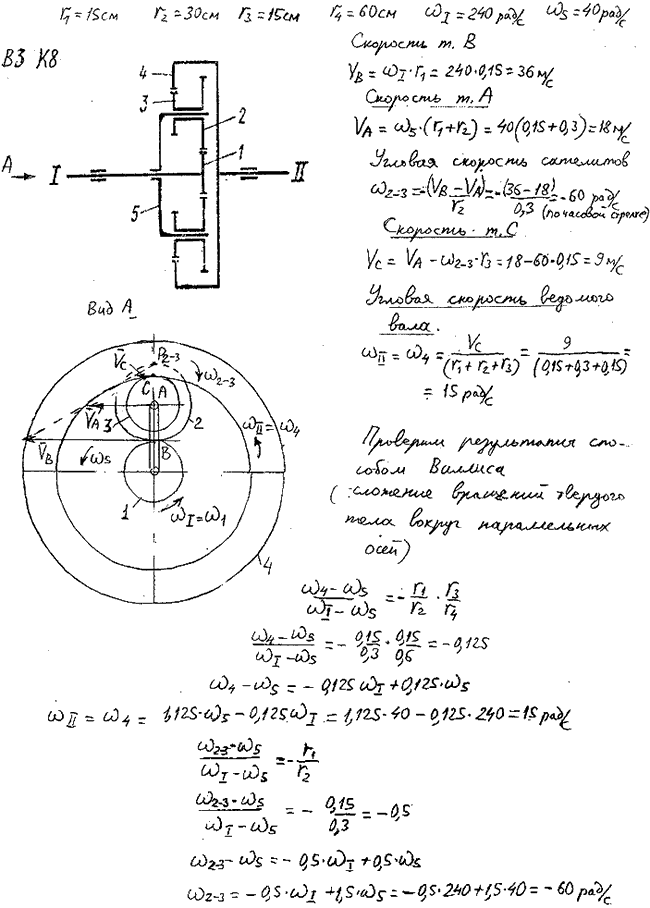 r₁ = 15см r₂ = 30см r₃ = 15см r₄ = 60см ω_I = 240 рад/с ω₅ = 40 рад/с
В3 К8
4
3
2
1
A
I
II
5
Скорость т. В
V_B = ω_I · r₁ = 240 · 0,15 = 36 м/с
Скорость т. А
V_A = ω₅ · (r₁ + r₂) = 40(0,15 + 0,3) = 18 м/с
Угловая скорость сателитов
ω₂₋₃ = -(V_B - V_A)/r₂ = -(36 - 18)/0,3 = -60 рад/с
(по часовой стрелке)
Скорость т. С
V_C = V_A - ω₂₋₃ · r₃ = 18 - 60 · 0,15 = 9 м/с
Угловая скорость ведомого
вала.
ω_II = ω₄ = V_C/(r₁ + r₂ + r₃) = 9/(0,15 + 0,3 + 0,15) =
= 15 рад/с
Вид А
P₂₋₃
V̄_C
ω₂₋₃
C
A
V̄_A
3
2
ω_II = ω₄
V̄_B
ω₅
B
1
ω_I = ω₁
4
Проверим результаты спо-
собом Виллиса
(сложение вращений твердого
тела вокруг параллельных
осей)
(ω₄ - ω₅)/(ω_I - ω₅) = - r₁/r₂ · r₃/r₄
(ω₄ - ω₅)/(ω_I - ω₅) = - 0,15/0,3 · 0,15/0,6 = -0,125
ω₄ - ω₅ = - 0,125 ω_I + 0,125 · ω₅
ω_II = ω₄ = 1,125 · ω₅ - 0,125 ω_I = 1,125 · 40 - 0,125 · 240 = 15 рад/с
(ω₂₋₃ - ω₅)/(ω_I - ω₅) = - r₁/r₂
(ω₂₋₃ - ω₅)/(ω_I - ω₅) = - 0,15/0,3 = -0,5
ω₂₋₃ - ω₅ = - 0,5 · ω_I + 0,5 · ω₅
ω₂₋₃ = - 0,5 · ω_I + 1,5 · ω₅ = - 0,5 · 240 + 1,5 · 40 = - 60 рад/с